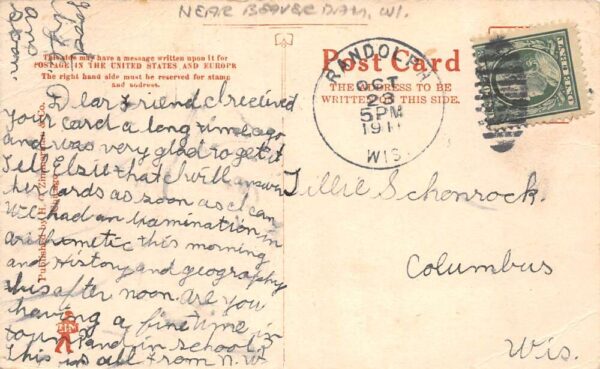 NEAR BEAVER DAM, WI.
This side may have a message written upon it for
POSTAGE IN THE UNITED STATES AND EUROPE
The right hand side must be reserved for stamp
and address.
Dear Friend I received
your card a long time ago
and was very glad to get it
Tell Elsie that I will answer
her cards as soon as I can
We had an examination in
arithmetic this morning
and history and geography
this after noon. Are you
having a fine time in
town and in school
This is all from N. W.
Published by H. G. Zimmerman & Co.
Post Card
THE ADDRESS TO BE
WRITTEN ON THIS SIDE.
RANDOLPH
OCT
23
5PM
1911
WIS.
ONE CENT
Tillie Schonrock.
Columbus
Wis.